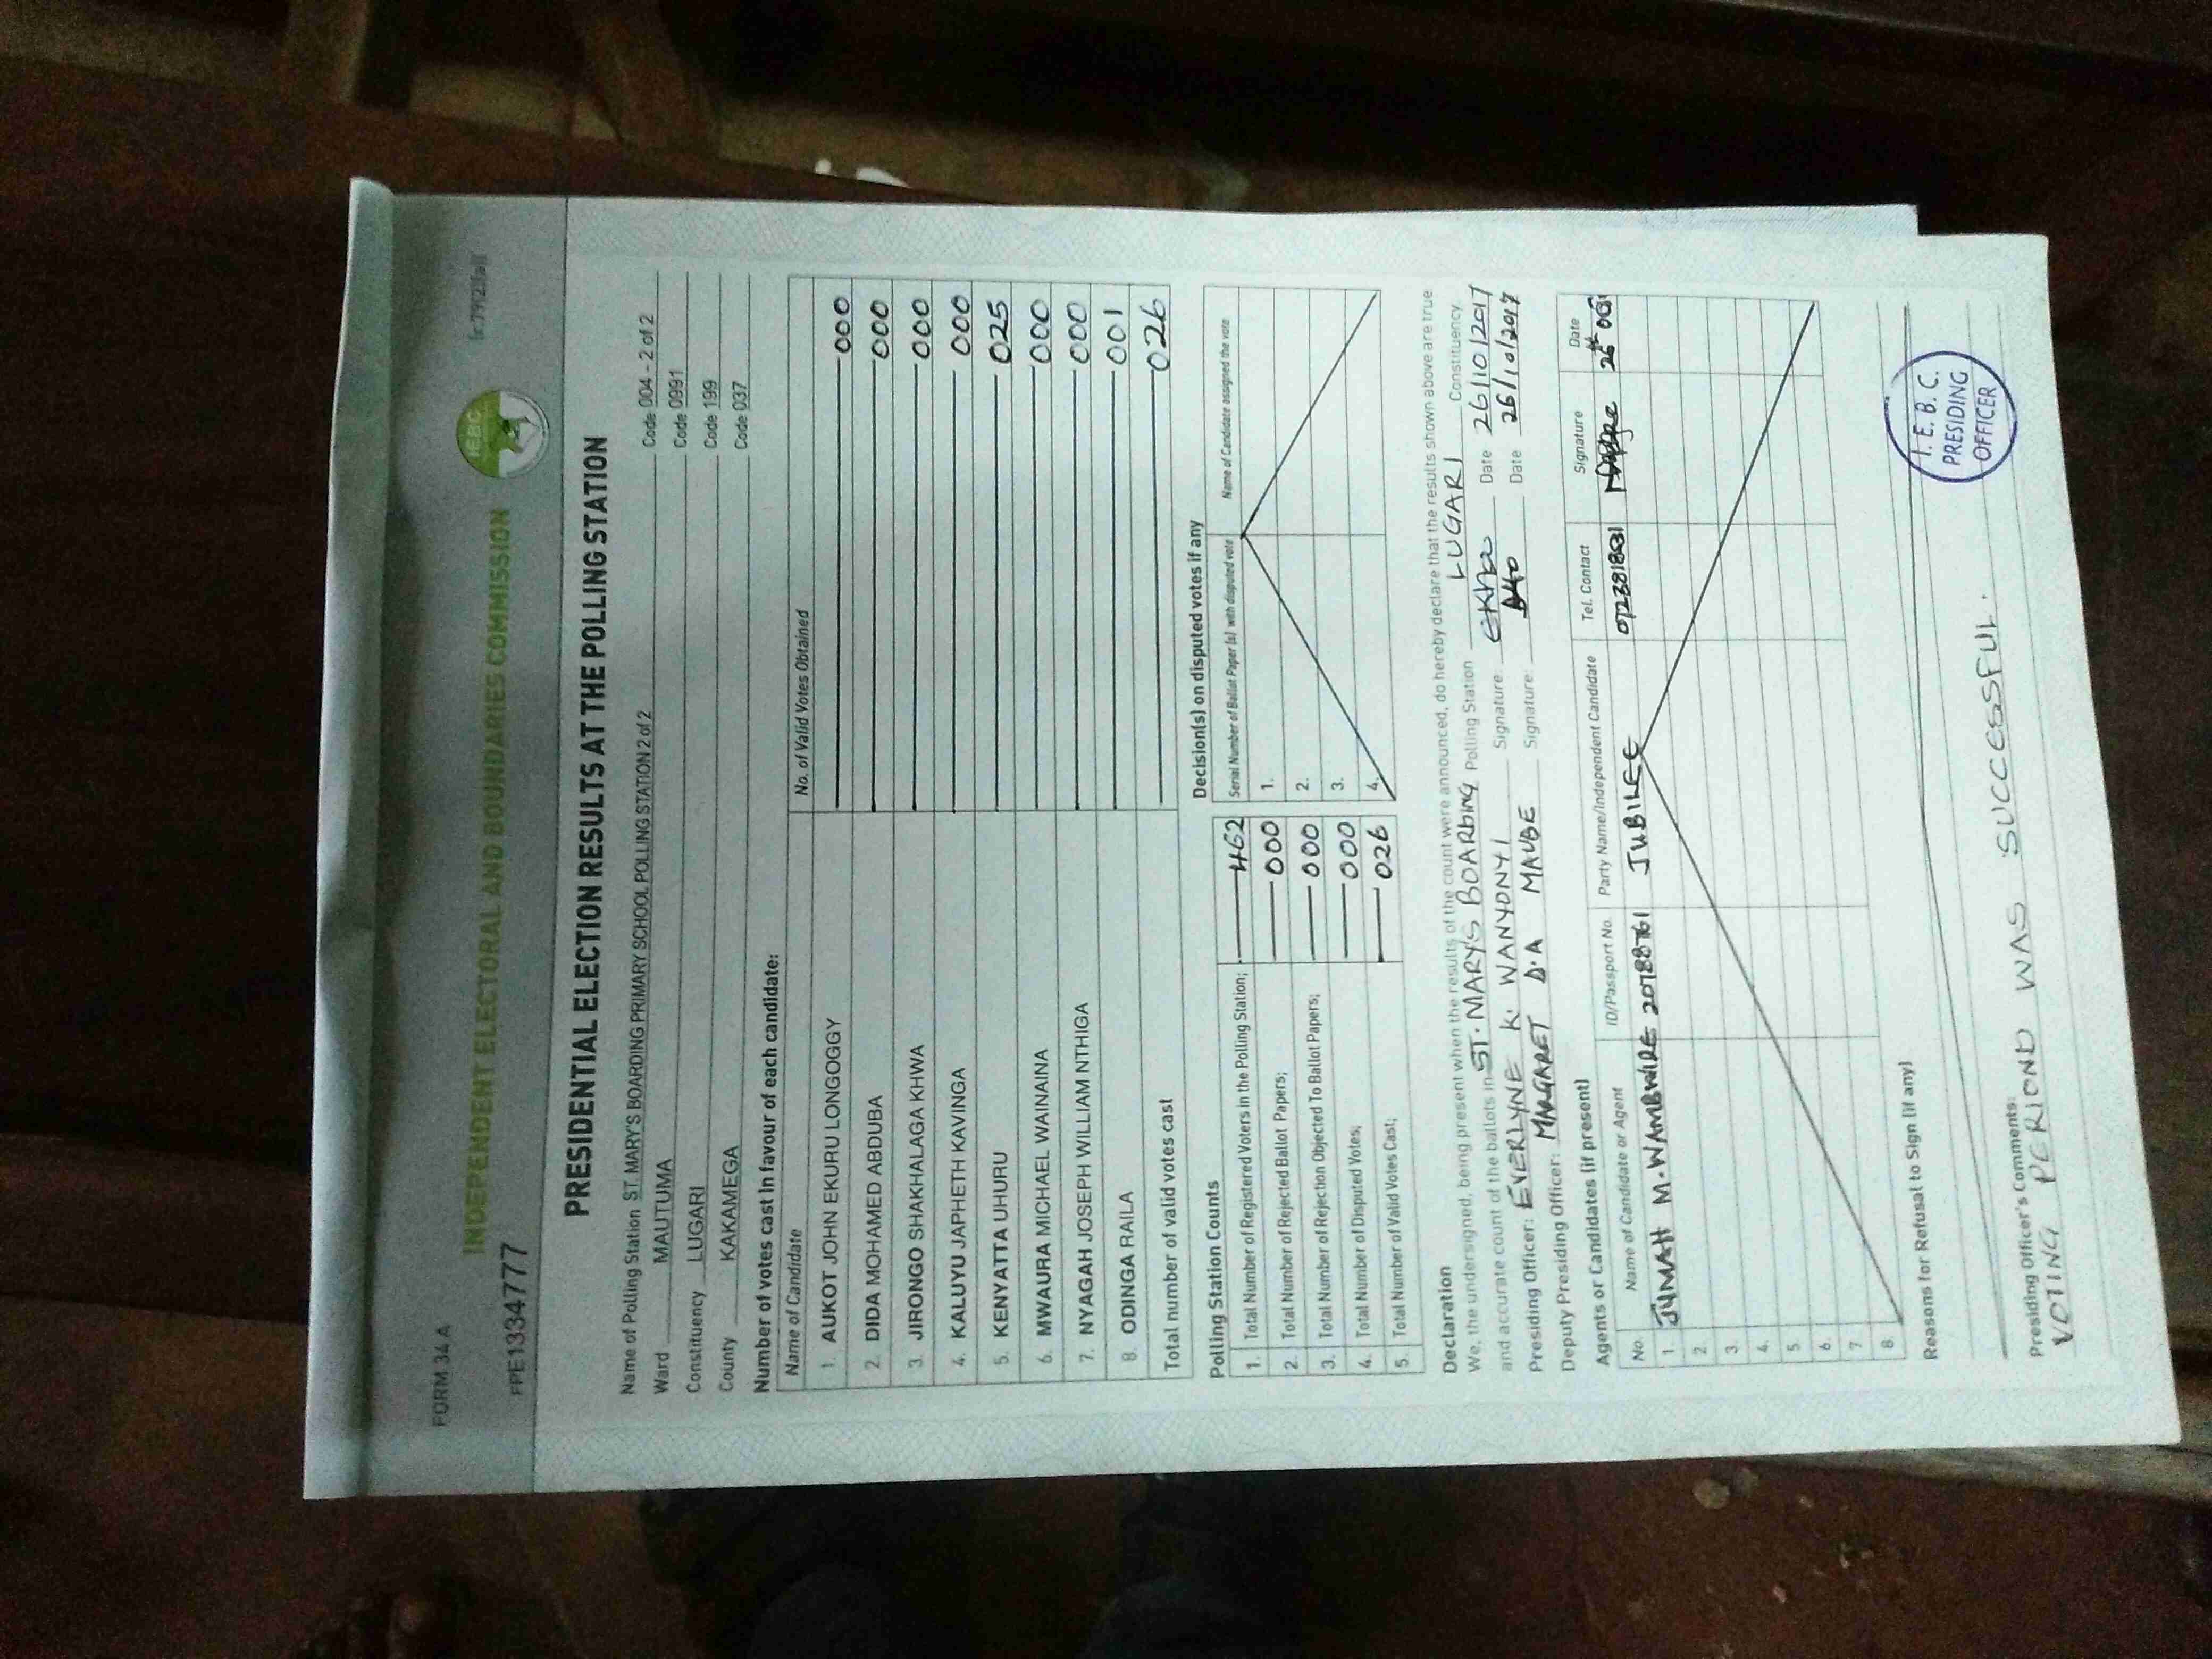 FORM 34 A
INDEPENDENT ELECTORAL AND BOUNDARIES COMMISSION
IEBC
FPE1334777
PRESIDENTIAL ELECTION RESULTS AT THE POLLING STATION
Name of Polling Station ST. MARY'S BOARDING PRIMARY SCHOOL POLLING STATION 2 of 2 Code 004 - 2 of 2
Ward MAUTUMA Code 0991
Constituency LUGARI Code 199
County KAKAMEGA Code 037
Number of votes cast in favour of each candidate:
Name of Candidate No. of Valid Votes Obtained
1. AUKOT JOHN EKURU LONGOGGY 000
2. DIDA MOHAMED ABDUBA 000
3. JIRONGO SHAKHALAGA KHWA 000
4. KALUYU JAPHETH KAVINGA 000
5. KENYATTA UHURU 025
6. MWAURA MICHAEL WAINAINA 000
7. NYAGAH JOSEPH WILLIAM NTHIGA 000
8. ODINGA RAILA 001
Total number of valid votes cast 026
Polling Station Counts
1. Total Number of Registered Voters in the Polling Station; 462
2. Total Number of Rejected Ballot Papers; 000
3. Total Number of Rejection Objected To Ballot Papers; 000
4. Total Number of Disputed Votes; 000
5. Total Number of Valid Votes Cast; 026
Decision(s) on disputed votes if any
Serial Number of Ballot Paper (s) with disputed vote Name of Candidate assigned the vote
1.
2.
3.
4.
Declaration
We, the undersigned, being present when the results of the count were announced, do hereby declare that the results shown above are true
and accurate count of the ballots in ST. MARY'S BOARDING Polling Station LUGARI Constituency
Presiding Officer: EVERLYNE K. WANYONYI Signature: Date 26/10/2017
Deputy Presiding Officer: MARGARET D.A MAUBE Signature: Date 26/10/2017
Agents or Candidates (if present)
No. Name of Candidate or Agent ID/Passport No. Party Name/Independent Candidate Tel. Contact Signature Date
1. JUMAH M. WAMBWIRE JUBILEE 26th
2.
3.
4.
5.
6.
7.
8.
Reasons for Refusal to Sign (if any)
I. E. B. C.
PRESIDING
OFFICER
Presiding Officer's Comments:
VOTING PERIOND WAS SUCCESSFUL.